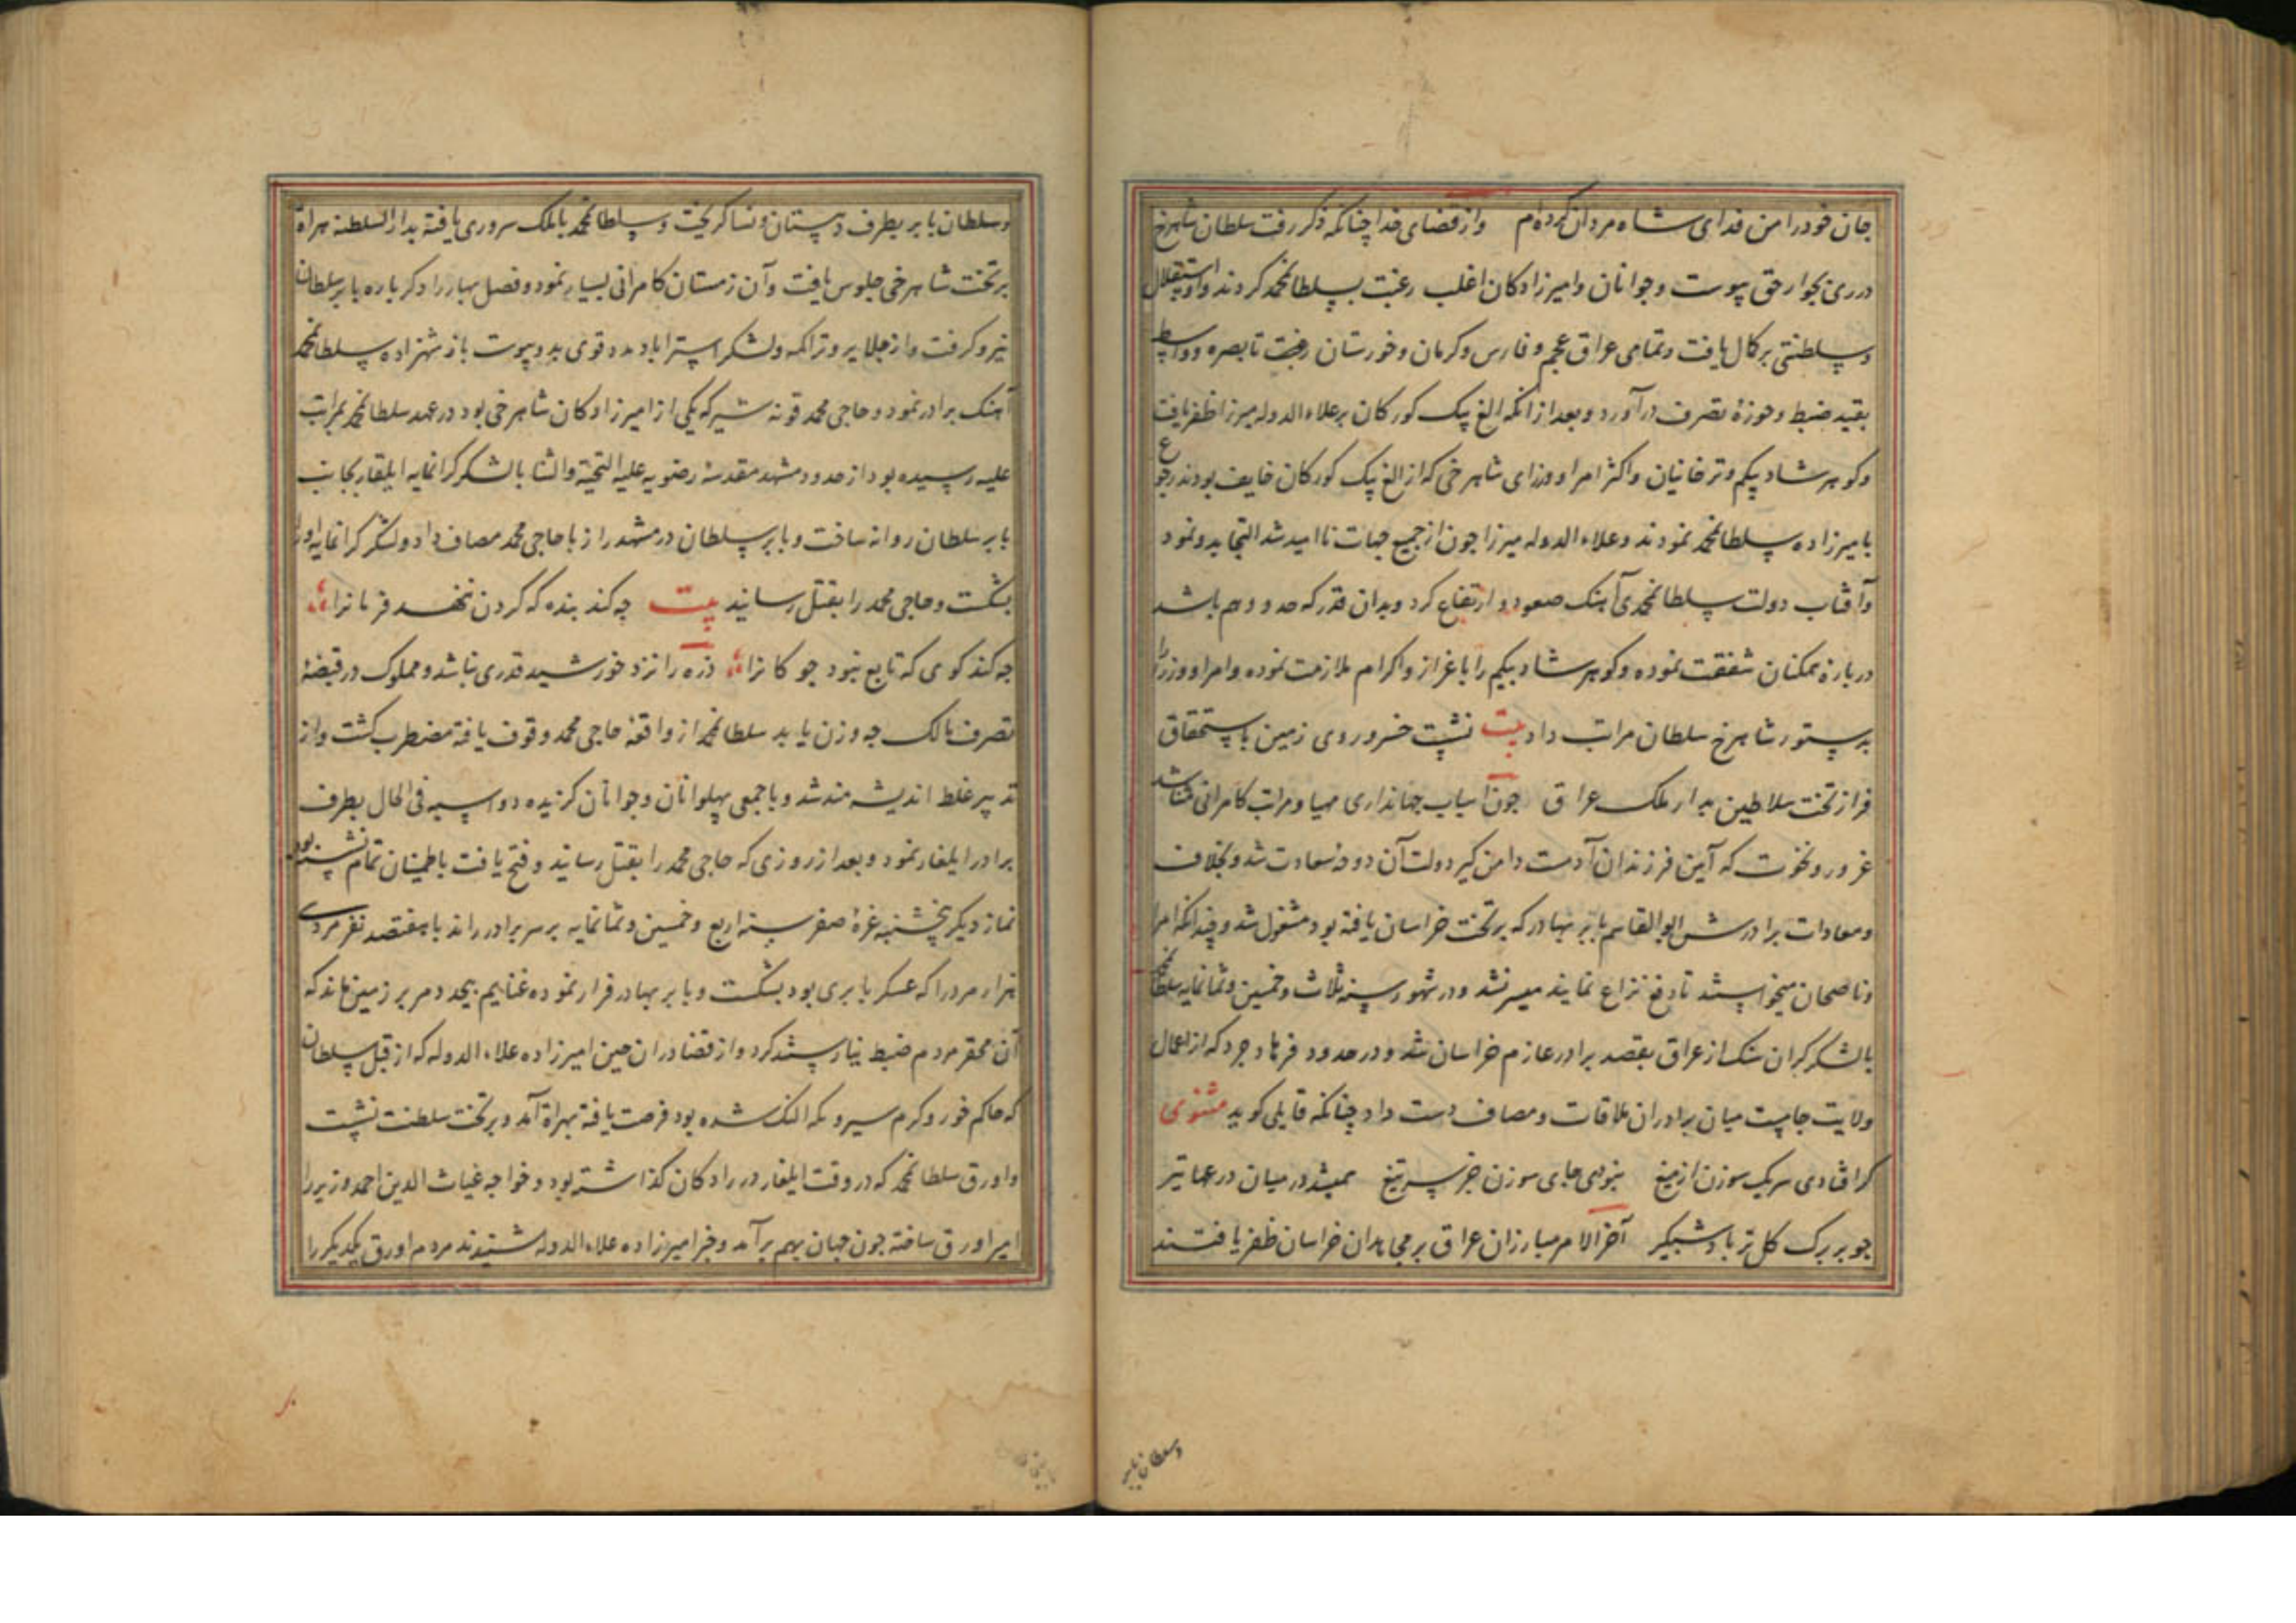 جان خود را من فدای شاه مردان کرده‌ام واز قضای خدا چنانکه ذکر رفت سلطان شاهرخ
در ری بجوار حق پیوست وجوانان وامیرزادکان اغلب رغبت بسلطانمحمد کردند واو استقلال
وسلطنتی برکمال یافت وتمامی عراق عجم وفارس وکرمان وخوزستان رغبت تا بصره وواسط
بقید ضبط وحوزهٔ تصرف درآورد وبعد از انکه الغ بیک کورکان بر علاء الدوله میرزا ظفر یافت
وکوهرشاد بیکم وترخانیان واکثر امرا ووزرای شاهرخی که از الغ بیک کورکان خایف بودند رجوع
با میرزاده سلطانمحمد نمودند وعلاء الدوله میرزا چون از جمیع جهات ناامید شد التجا بدو نمود
وآفتاب دولت سلطانمحمدی آهنک صعود وارتفاع کرد وبدان قدر که حد ووهم باشد
در بارهٔ همکنان شفقت نموده وکوهرشاد بیکم را باعزاز واکرام ملازمت نموده وامرا ووزرا را
بدستور شاهرخ سلطان مراتب داد بیت نشست خسرو روی زمین باستحقاق
فراز تخت سلاطین بدار ملک عراق چون اسباب جهانداری مهیا ومراتب کامرانی مهنا شد
غرور ونخوت که آیین فرزندان آدمست دامن کیر دولت آن دوحهٔ سعادت شد وبخلاف
ومعادات برادرش ابوالقاسم بابر بهادر که بر تخت خراسان یافته بود مشغول شد وچندانکه امرا
وناصحان میخواستند تا دفع نزاع نمایند میسر نشد ودر شهور سنه ثلاث وخمسین وثمانمایه سلطانمحمد
با لشکر کران سنک از عراق بقصد برادر عازم خراسان شد ودر حدود فرهادجرد که از اعمال
ولایت جامست میان برادران ملاقات ومصاف دست داد چنانکه قایلی کوید مثنوی
کر افتادی سر یک سوزن از میغ نبودی جای سوزن جز سر تیغ همیشد در میان درعها تیر
چو بر برک کل تر باد شبکیر آخر الامر مبارزان عراق بر مجاهدان خراسان ظفر یافتند
وسلطان بابر
وسلطان بابر بطرف دهستان ونسا کریخت وسلطانمحمد با ملک سروری یافته بدار السلطنه هراة
بر تخت شاهرخی جلوس یافت وآن زمستان کامرانی بسیار نمود وفصل بهار را دکر باره بابر سلطان
نیرو کرفت واز جلایر وتراکمه ولشکر استراباد مدد قوی بدو پیوست باز شهزاده سلطانمحمد
آهنک برادر نمود وحاجی محمد قونه شیر که یکی از امیرزادکان شاهرخی بود در عهد سلطانمحمد بمراتب
علیه رسیده بود از حدود مشهد مقدسهٔ رضویه علیه التحیة والثنا با لشکر کرانمایه ایلغار بجانب
بابر سلطان روانه ساخت وبابر سلطان در مشهد راز با حاجی محمد مصاف داد ولشکر کرانمایه اورا
بشکست وحاجی محمد را بقتل رسانید بیت چه کند بنده که کردن ننهد فرمانرا
چه کند کوی که تابع نبود چوکانرا ذره را نزد خورشید قدری نباشد ومملوک در قبضهٔ
تصرف مالک چه وزن یابد سلطانمحمد از واقعه حاجی محمد وقوف یافته مضطرب کشت واز
تدبیر غلط اندیشه مند شد وبا جمعی پهلوانان وجوانان کزیده دو اسبه فی الحال بطرف
برادر ایلغار نمود وبعد از روزی که حاجی محمد را بقتل رسانید وفتح یافت باطمینان تمام نشسته بود
نماز دیکر پنجشنبه غرهٔ صفر سنه اربع وخمسین وثمانمایه بر سر برادر راند با هفتصد نفر مردی
هزار مرد را که عسکر بابری بود بشکست وبابر بهادر فرار نموده غنایم بیحد ومر بر زمین ماند که
آن محقر مردم ضبط نیارستند کرد واز قضا دران حین امیرزاده علاء الدوله که از قبل سلطان
که حاکم غور وکرم سیر ونکه النک شده بود فرصت یافته بهراة آمد وبر تخت سلطنت نشست
واورق سلطانمحمد که در وقت ایلغار در رادکان کذاشته بود وخواجه غیاث الدین احمد وزیر را
امیر اورق ساخته چون جهان بهم برآمد وخبر امیرزاده علاء الدوله شنیدند مردم اورق یکدیکر را